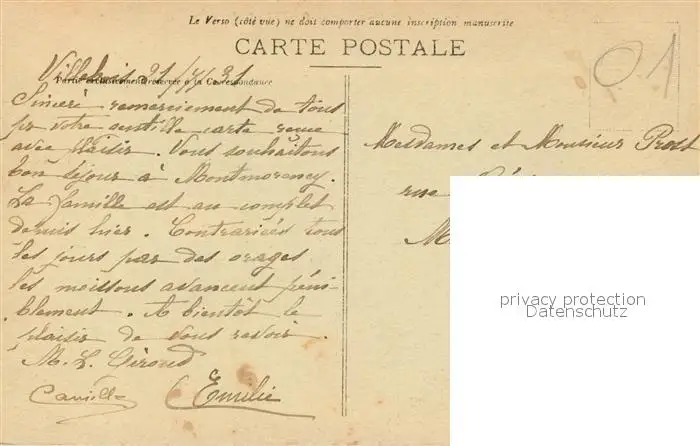 Le Verso (côté vue) ne doit comporter aucune inscription manuscrite
CARTE POSTALE
21/7/31
Partie exclusivement réservée à la Correspondance
Sincère remerciement de tous
pr votre gentille carte reçue
avec plaisir. Vous souhaitons
bon séjour à Montmorency.
La famille est au complet
depuis hier. Contrariés tous
les jours par des orages
les moissons avancent péni-
blement. A bientôt le
plaisir de vous revoir.
M. L. Giroud
Camille
Emilie
01
Mesdames et Monsieur Prost
rue
M
privacy protection
Datenschutz